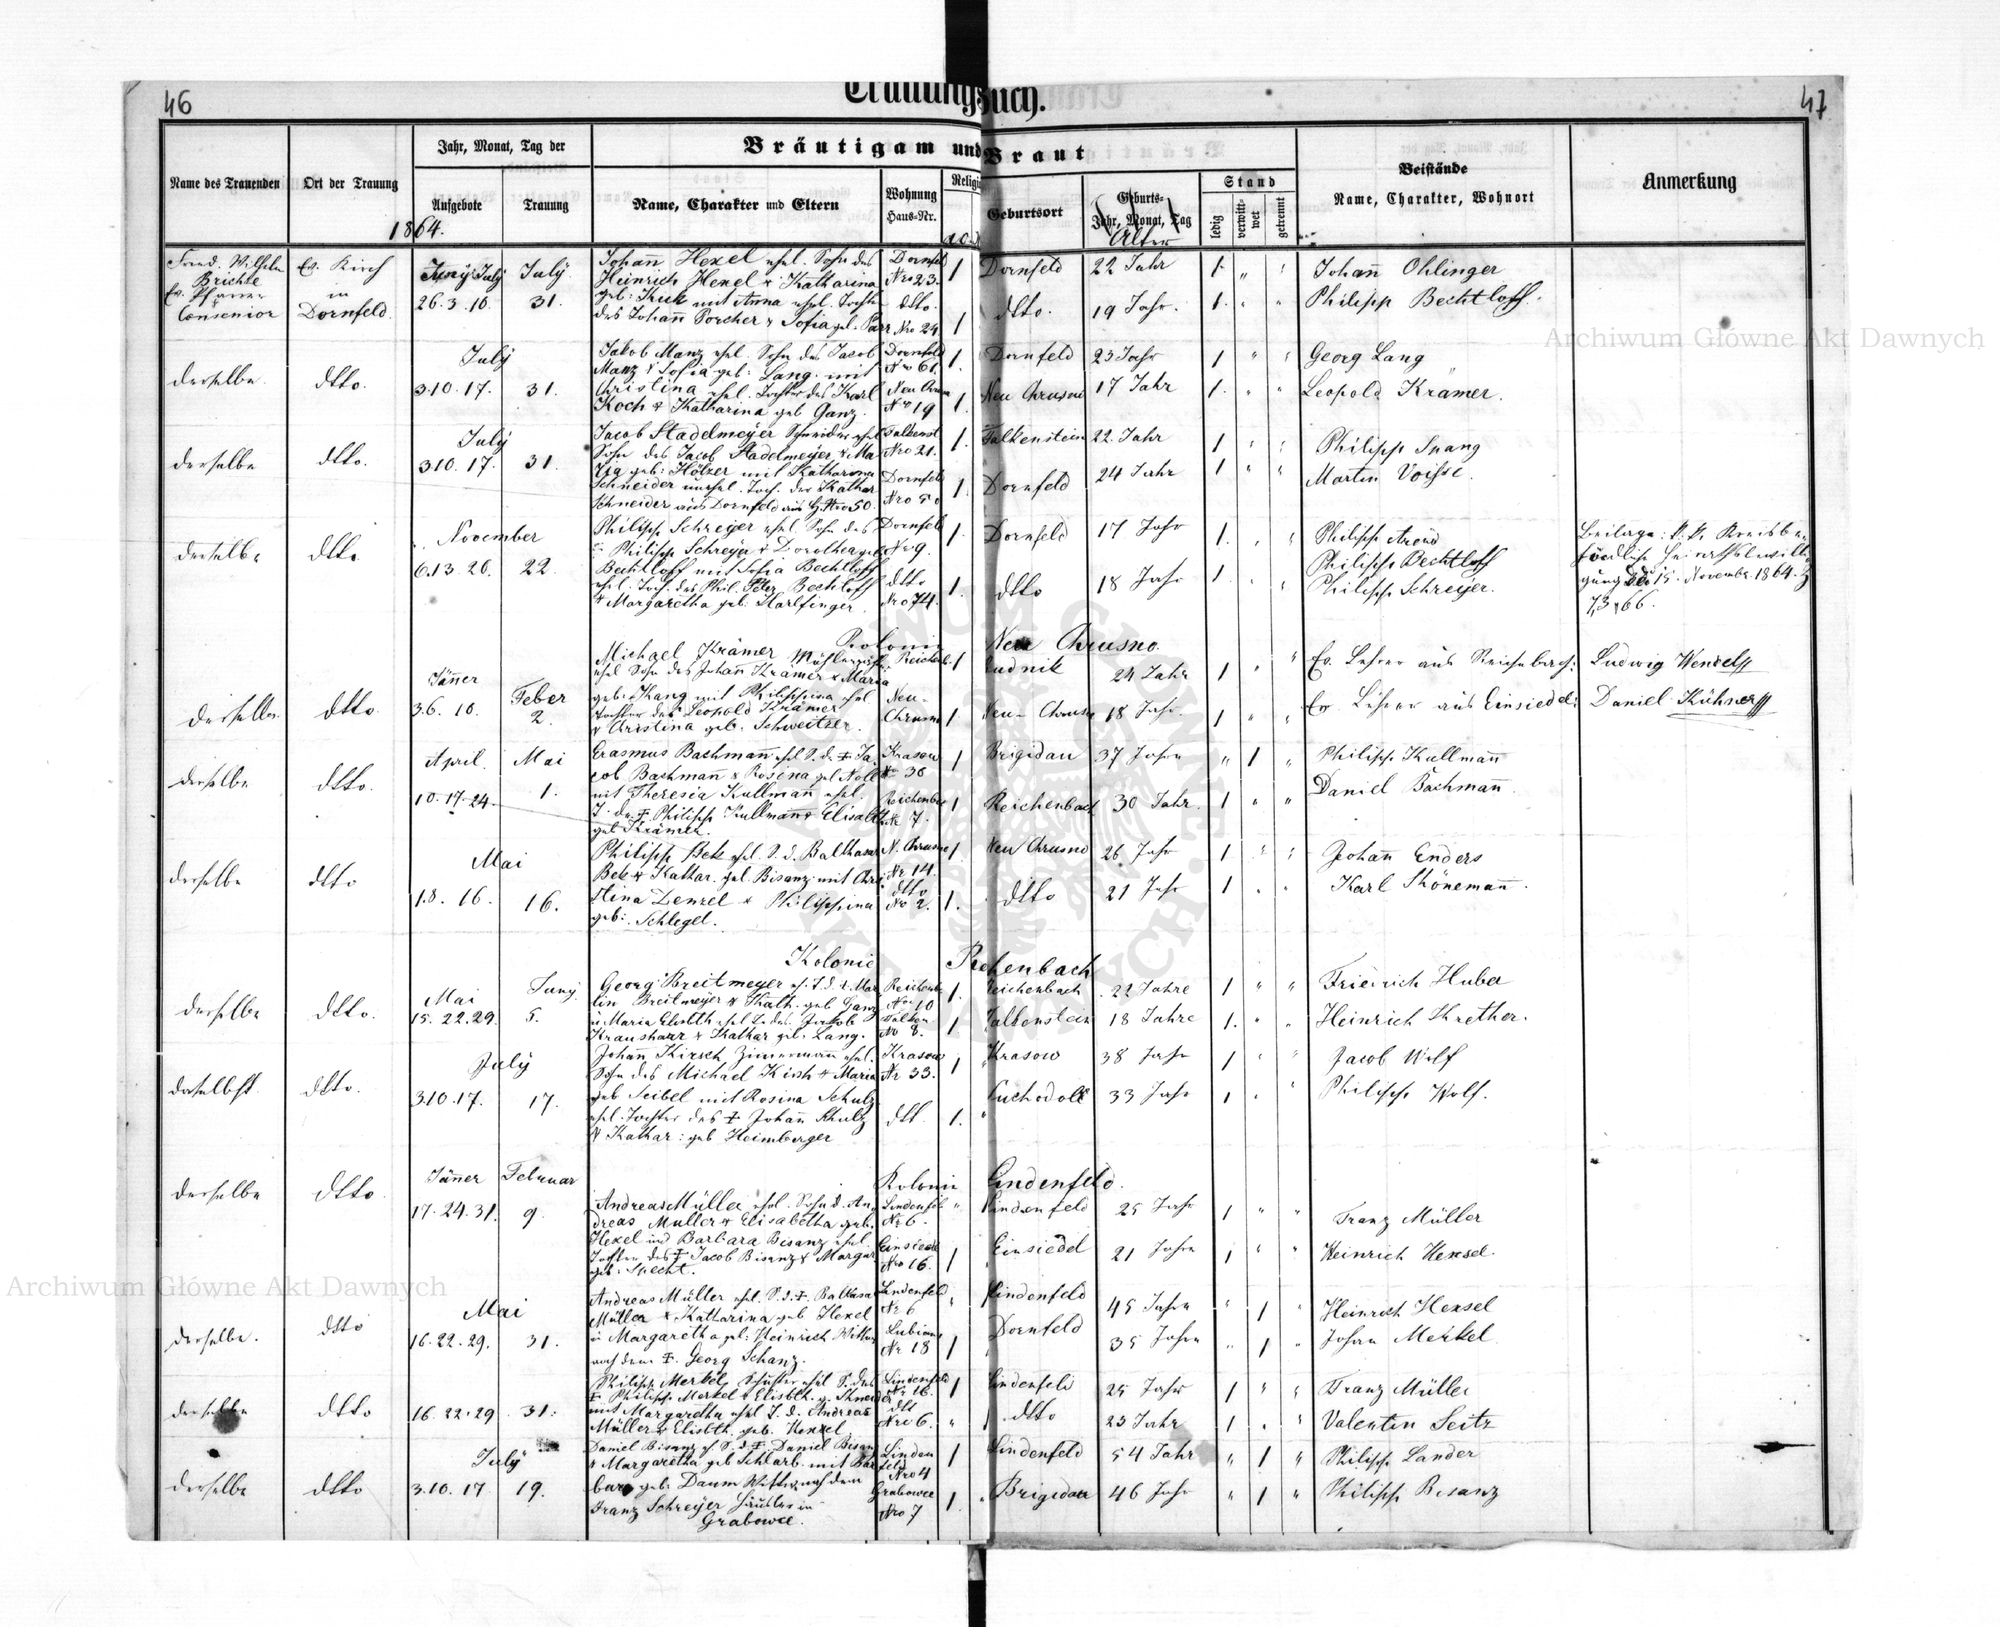 46
47
Trauungsbuch.
Name des Trauenden
Ort der Trauung
Jahr, Monat, Tag der
Aufgebote
Trauung
Bräutigam und Braut
Name, Charakter und Eltern
Wohnung
Haus-Nr.
Religi
Geburtsort
Geburts-
Jahr, Monat, Tag
Alter
Stand
ledig
verwitt-
wet
getrennt
Beistände
Name, Charakter, Wohnort
Anmerkung
1864.
Fried. Wilhelm
Ev. Pfarrer
Consenior
Ev. Kirch
in
Dornfeld
Juny July
26. 3. 10.
July
31.
Johann Hexel ehel. Sohn des
Heinrich Hexel & Katharina
geb: Kuk mit Anna ehel. Tochter
des Johann Porcher & Sofia geb.
Dornfeld
Nro 23.
dtto.
Nro 24
1
1
Dornfeld
dtto.
22 Jahr
19 Jahr.
1 " "
1 " "
Johann Ohlinger
Philipp Bechtloff.
derselbe.
dtto.
July
3.10.17.
31.
Jakob Manz ehel. Sohn des Jacob
Manz & Sofia geb: Lang. mit
Christina ehel. Tochter des Karl
Koch & Katharina geb Ganz.
Dornfeld
Nro 66.
Neu Chrusno
Nro 19
1.
1.
Dornfeld
Neu Chrusno
23 Jahr
17 Jahr
1 " "
1 " "
Georg Lang
Leopold Krämer.
derselbe
dtto.
July
3.10.17.
31.
Jacob Stadelmeyer Schneider ehel
Sohn des Jacob Stadelmeyer & Ma
ria geb: Hölzer mit Katharina
Schneider unehel. Toch. der Kathar
Schneider aus Dornfeld aus H. Nro 50.
Falkenst
Nro 21.
Dornfeld
Nro 50
1.
1.
Falkenstein
Dornfeld
22. Jahr
24 Jahr
1 " "
1 " "
Philipp Spang
Martin Voisse.
derselbe
dtto
November
6.13.20.
22.
Philipp Schreyer ehel Sohn des
Philipp Schreyer & Dorothea geb
Bechtloff mit Sofia Bechtloff
ehel. Toch. des Phil. Peter Bechtloff
& Margaretha geb: Harlfinger.
Dornfeld
Nro 9.
dtto
Nro 74.
1.
1.
Dornfeld
dtto
17 Jahr
18 Jahr
1. "
1. "
Philipp Arend
Philipp Bechtloff
Philipp Schreyer.
Beilage: k. k. Kreisbe-
hördliche Heirathsbewilli-
gung ddo 15. November 1864. Z
7366.
Kolonie Neu Chrusno.
derselbe
dtto.
Jänner
3.6. 10.
Feber
2.
Michael Krämer
ehel Sohn des Johann Krämer & Maria
geb: Kang mit Philippina ehel
Tochter des Leopold Krämer
& Christina geb. Schweitzer.
Reichenb.
Neu-
Chrusno
1
1
Rudnik
Neu- Chrusno
24 Jahr
18 Jahr.
1 " "
1 " "
Ev. Lehrer aus Reichenbach:
Ev. Lehrer aus Einsiedel:
Ludwig Wendel
Daniel Kühner
derselbe
dtto.
April.
10.17.24.
Mai
1.
Erasmus Bachmann ehel S. d. ‡ Ja
cob Bachmann & Rosina geb Noll
mit Theresia Kullmann ehel.
T. des ‡ Philipp Kullmann & Elisabet
geb Krämer.
Krasow
Nr 36
Reichenbach
Nr 7.
1
1
Brigidau
Reichenbach
37 Jahre
30 Jahr.
" 1 "
1 " "
Philipp Kullmann
Daniel Bachmann.
derselbe
dtto
Mai
1.8. 16.
16.
Philipp Bek ehel. S. d. Balthasar
Bek & Kathar. geb. Bisanz mit Chri
stina Denzel & Philippina
geb: Schlegel.
N. Chrusno
Nr 14.
dtto
Nro 2.
1
1.
Neu Chrusno
dtto
26 Jahr
21 Jahr
1 " "
1 " "
Johann Enders
Karl Schönemann.
Kolonie Reichenbach
derselbe
dtto.
Mai
15. 22. 29.
Juny
5.
Georg Breitmeyer eh. S. d. Mar
tin Breitmeyer & Kath. geb Ganz
u Maria Elisbth ehel T. des Jakob
Kraushaar & Kathar geb. Lang.
Reichenb
Nro 10
Falken
No 8.
1.
1.
Reichenbach
Falkenstein
22 Jahre
18 Jahre
1 " "
1. " "
Friedrich Huber
Heinrich Krether.
daselbst
dtto.
July
3.10.17.
17.
Johann Kirsch Zimermann ehel.
Sohn des Michael Kirsch & Maria
geb Seibel mit Rosina Schulz
ehel. Tochter des ‡ Johann Schulz
& Kathar: geb Heimberger
Krasow
Nr 33.
dtt.
1
1.
Krasow
Suchodole
38 Jahr
33 Jahr
1 " "
1 " "
Jacob Wolf
Philipp Wolf.
Kolonie Lindenfeld.
derselbe
dtto.
Jänner
17.24.31.
Februar
9.
Andreas Müller ehel. Sohn d. An
dreas Müller & Elisabetha geb.
Hexel und Barbara Bisanz ehel.
Tochter des ‡ Jacob Bisanz & Margar
geb: Specht.
Lindenfeld
Nr 6.
Einsiedel
Nro 16.
"
1
Lindenfeld
Einsiedel
25 Jahr
21 Jahre
1 " "
1 " "
Franz Müller
Heinrich Hexsel.
derselbe.
dtto
Mai
16.22.29.
31.
Andreas Müller ehel. S. d. ‡. Baltasar
Müller & Katharina geb Hexel
u Margaretha geb: Heinrich Wittwe
nach dem ‡. Georg Schanz.
Lindenfeld
Nr 6
Lubiana
Nr 18
"
1
Lindenfeld
Dornfeld
45 Jahre
35 Jahre
" 1 "
" 1 "
Heinrich Hexsel
Johan Merkel.
derselbe
dtto
16.22.29
31.
Philipp Merkel Schuster ehel S. des
‡ Philipp Merkel & Elisbth. g. Schneider
mit Margaretha ehel T. d. Andreas
Müller & Elisbth. geb. Hexel
Lindenfeld
Nr 16.
dtt
Nro 6.
1
"
Lindenfeld
dtto
25 Jahr
23 Jahr
1 " "
1 " "
Franz Müller
Valentin Seitz
derselbe
dtto
July
3.10.17
19.
Daniel Bisanz eh S. d. ‡. Daniel Bisanz
& Margaretha geb Schlarb. mit Bar
bara geb: Daum Wittwe nach dem
Franz Schreyer Häusler in
Grabowce.
Linden
feld
Nro 4
Grabowce
Nro 7
1
1.
Lindenfeld
Brigidau
54 Jahr
46 Jahr
" 1 "
" 1 "
Philipp Lander
Philipp Bisanz
Archiwum Główne Akt Dawnych
Archiwum Główne Akt Dawnych